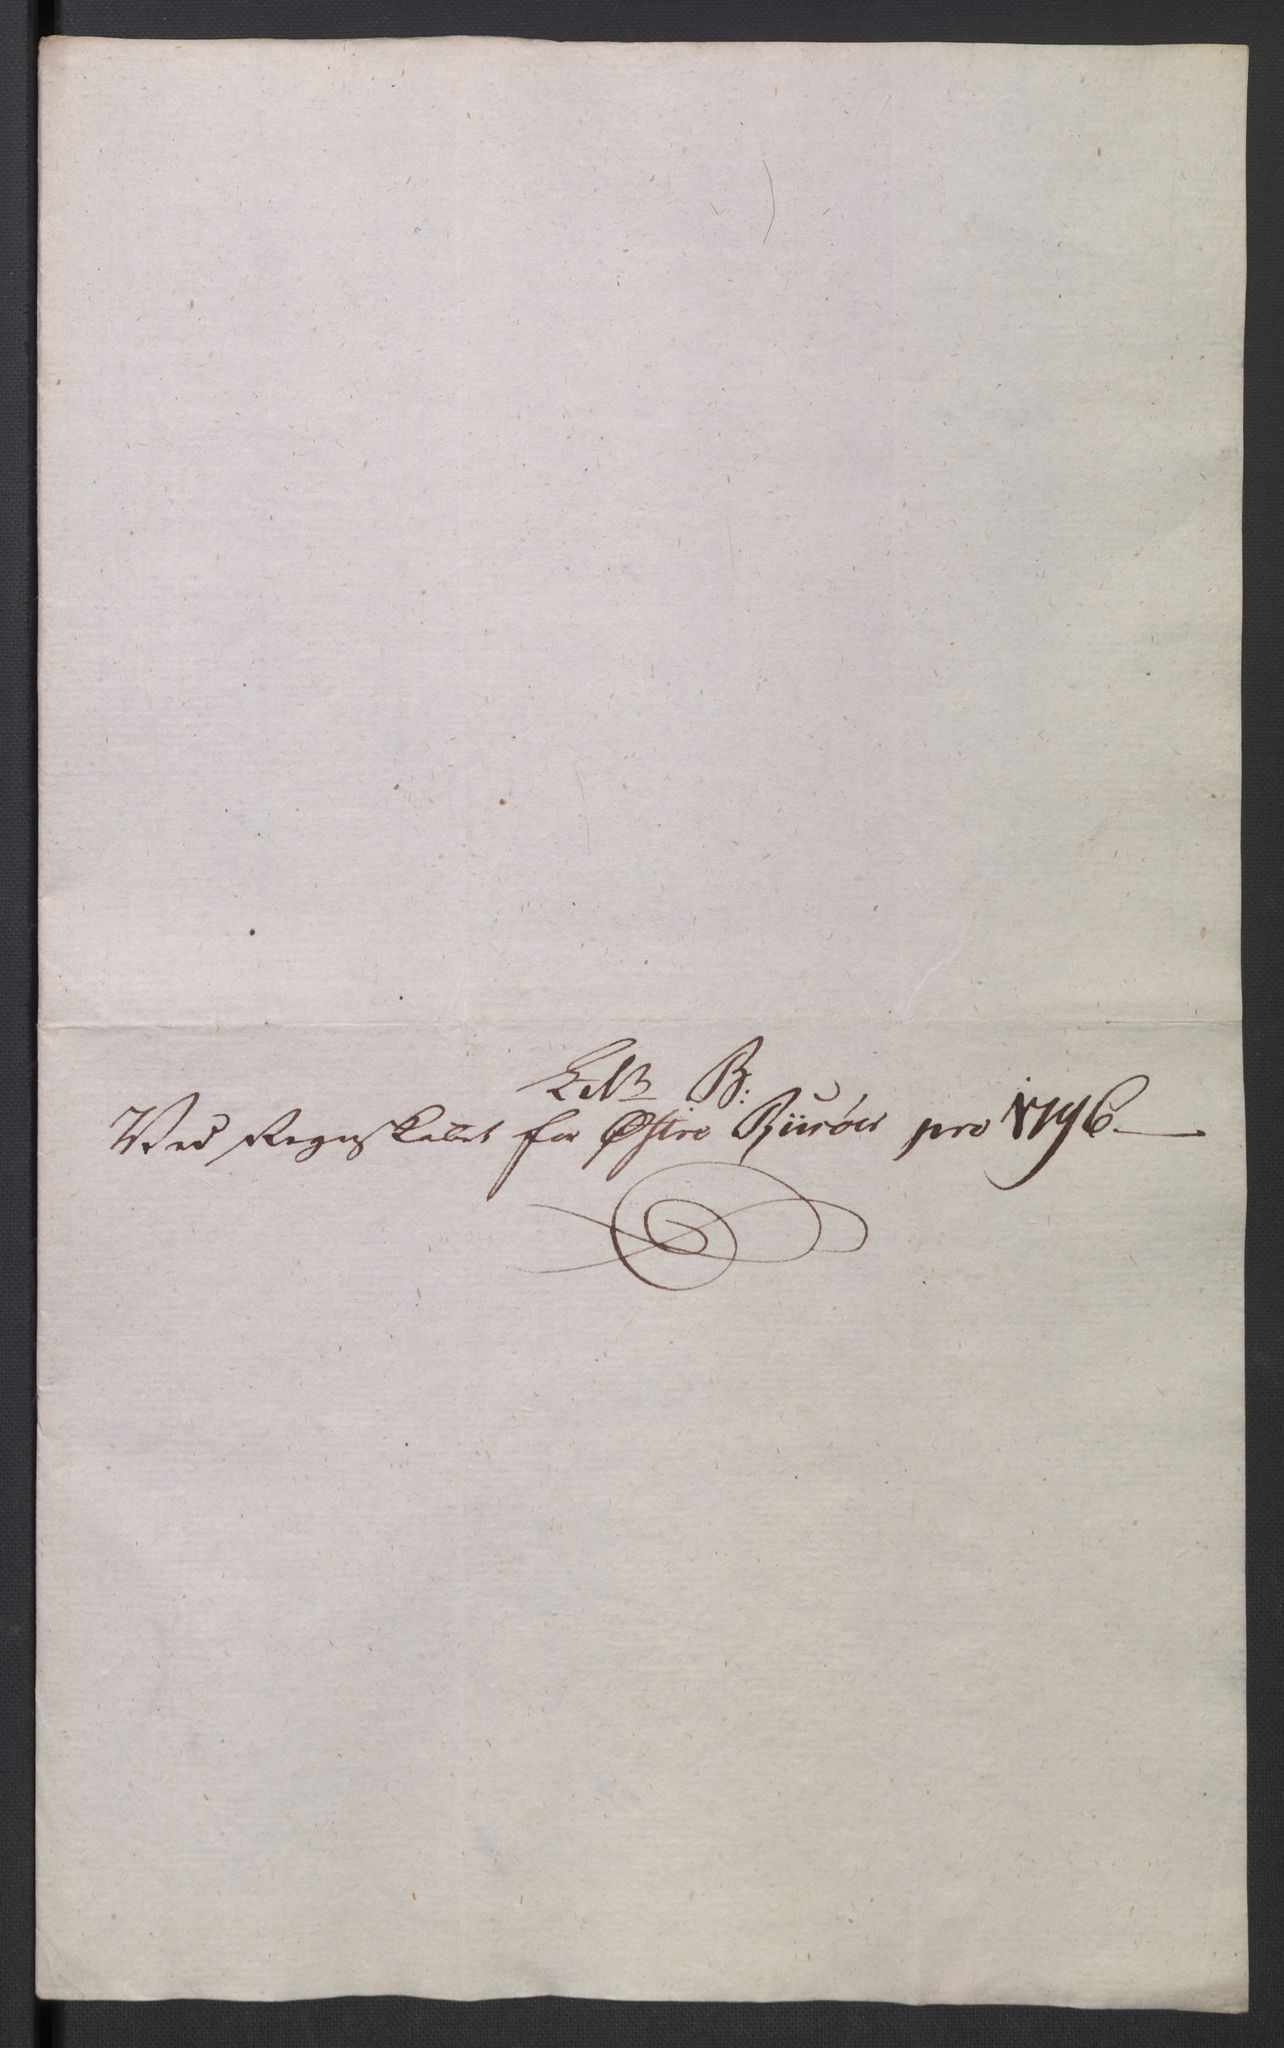 Litr B:
Ved Regnskabet for Østre Riisøer pro 1796